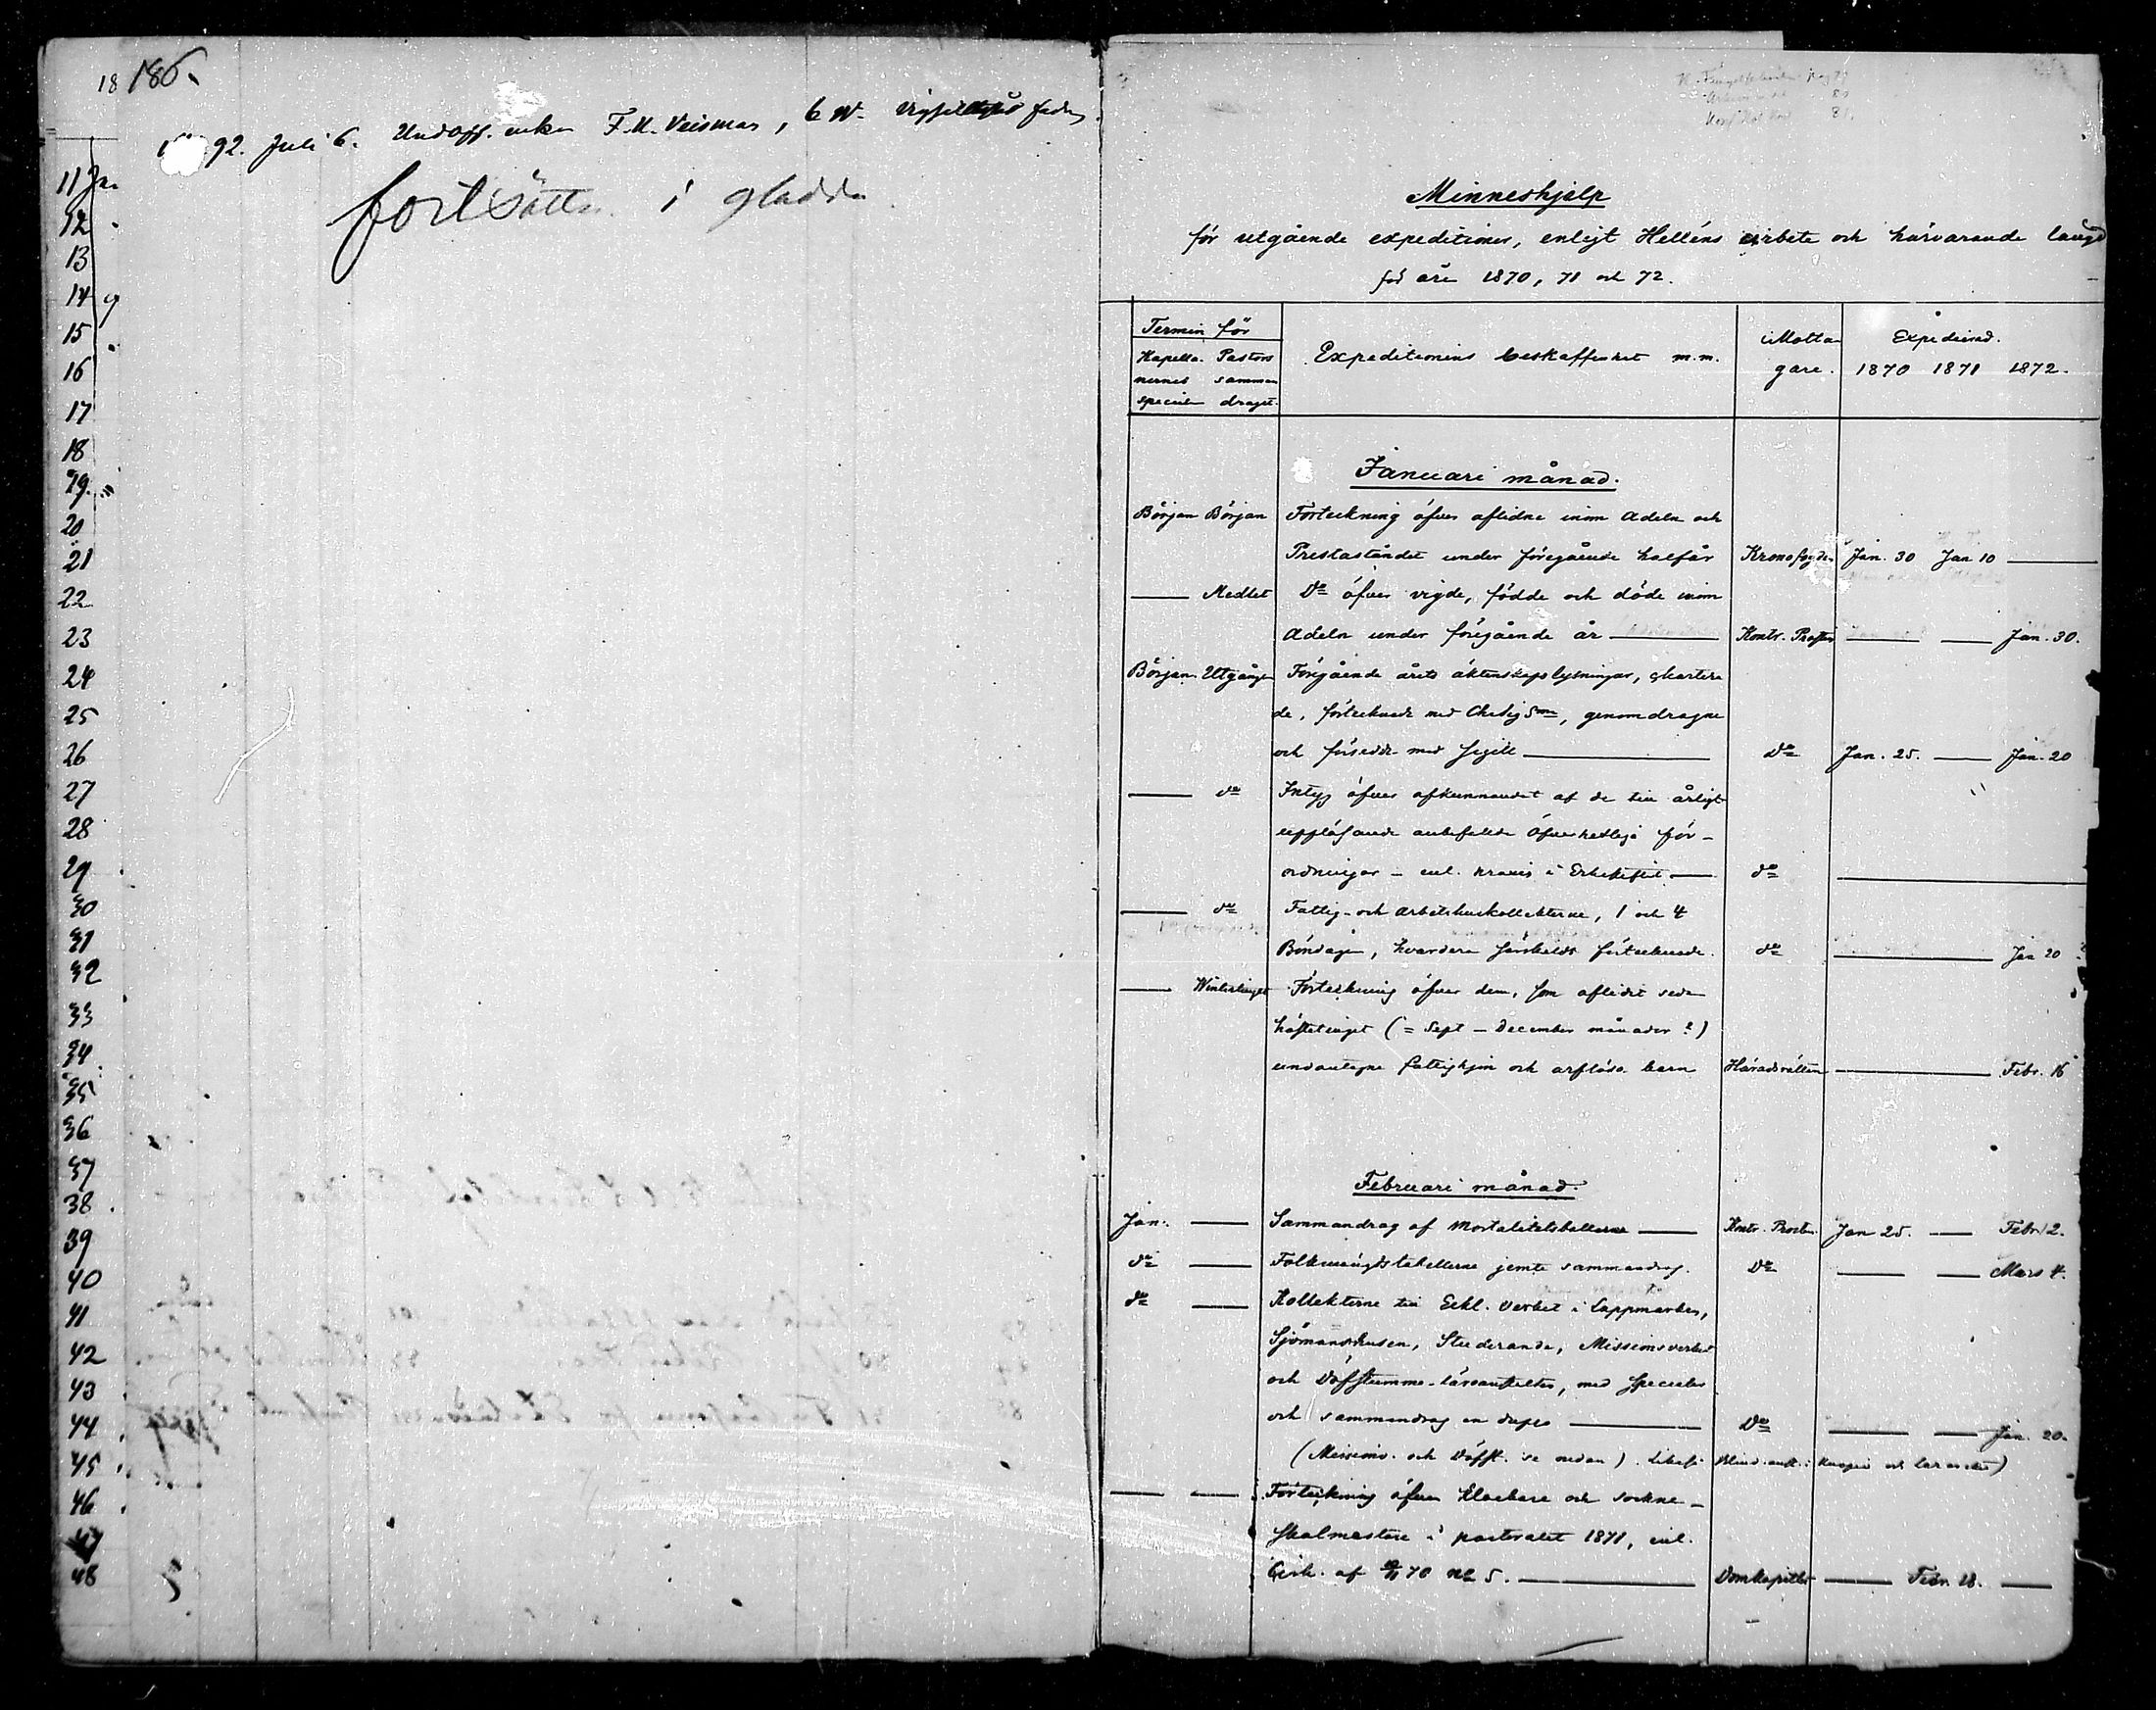 18 186.
92. Juli 6. Undoff. enkan F. M. Veisman, 6 W.
fortsättes i gladda
11
12
13
14
15
16
17
18
19
20
21
22
23
24
25
26
27
28
29
30
31
32
33
34
35
36
37
38
39
40
41
42
43
44
45
46
47
48
Minneshjelp
för utgående expeditioner, enligt Helléns arbete och härvarande längd
för åren 1870, 71 och 72.
Termin för
Kapella- Pastors Expeditionens beskaffenhet m.m. Motta- Expedierad.
nernes samman gare. 1870 1871 1872.
speciela draget.
Januari månad.
Början Början Förteckning öfver aflidne inom Adeln och
Prestaståndet under föregående halfår Kronofogden Jan. 30 Jan 10 —
— Medlet Do öfver vigde, födde och döde inom
Adeln under föregående år — Kontr. Prosten — — Jan. 30.
Början Utgången Föregående årets äktenskapslysningar, qvartera
de, förtecknade med Charta Sigill, genomdragne
och försedde med Sigill — Do Jan. 25. — Jan. 20
— do Intyg öfver afkunnandet af de till årligt
uppläsande anbefallda Öfverhetliga för-
ordningar — enl. i Erkestiftet — do —
— do Fattig- och arbetshuskollekterne, 1 och 4
Böndagen, hvardera särskildt förtecknade. do — Jan 20
— Vintertinget Förteckning öfver dem, som aflidit sedan
hösttinget (= Sept — December månader?)
undantagne fattighjon och arflösa barn Häradsrätten — Febr. 16
Februari månad.
Jan. — Sammandrag af Mortalitetstabellerne — Kontr. Prosten Jan 25. — Febr. 2.
do — Folkmängdstabellerne jemte sammandrag. Do — — Mars 4.
do — Kollekterne till Eckl. verket i Lappmarken,
Sjömanshusen, Studerande, Missionsverket
och Döfstumme-läroanstalten, med Specieler
och sammandrag in duplo — Do — — Jan. 20.
(Missions. och Döfst. se nedan). Likaså Blind.anst. i Kuopio
— — Förteckning öfver klockare och sockne-
skolmästare i pastoratet 1871, enl.
Cirk. af 70 No 5. — Domkapitlet — Febr. 28. —